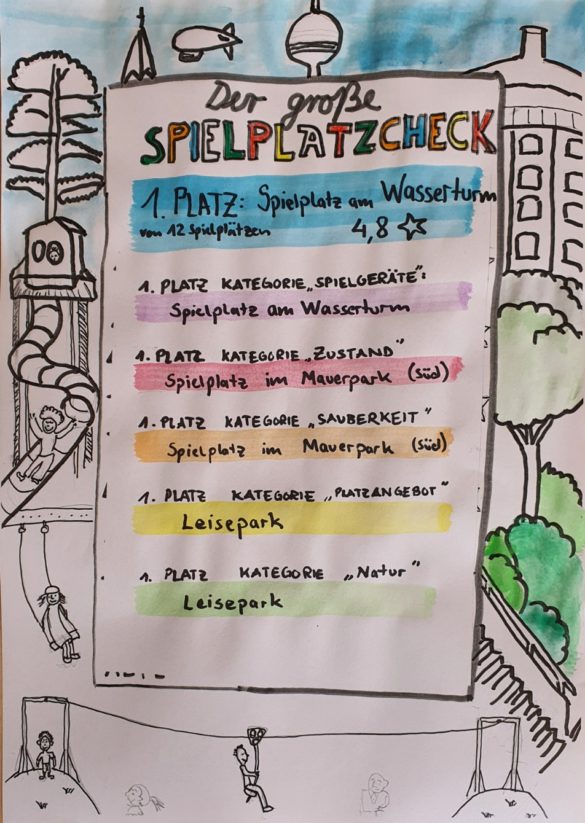 Der große
SPIELPLATZCHECK
1. PLATZ: Spielplatz am Wasserturm
von 12 Spielplätzen 4,8 ☆
1. PLATZ KATEGORIE „SPIELGERÄTE":
Spielplatz am Wasserturm
1. PLATZ KATEGORIE „ZUSTAND"
Spielplatz im Mauerpark (süd)
1. PLATZ KATEGORIE „SAUBERKEIT"
Spielplatz im Mauerpark (süd)
1. PLATZ KATEGORIE „PLATZANGEBOT"
Leisepark
1. PLATZ KATEGORIE „Natur"
Leisepark